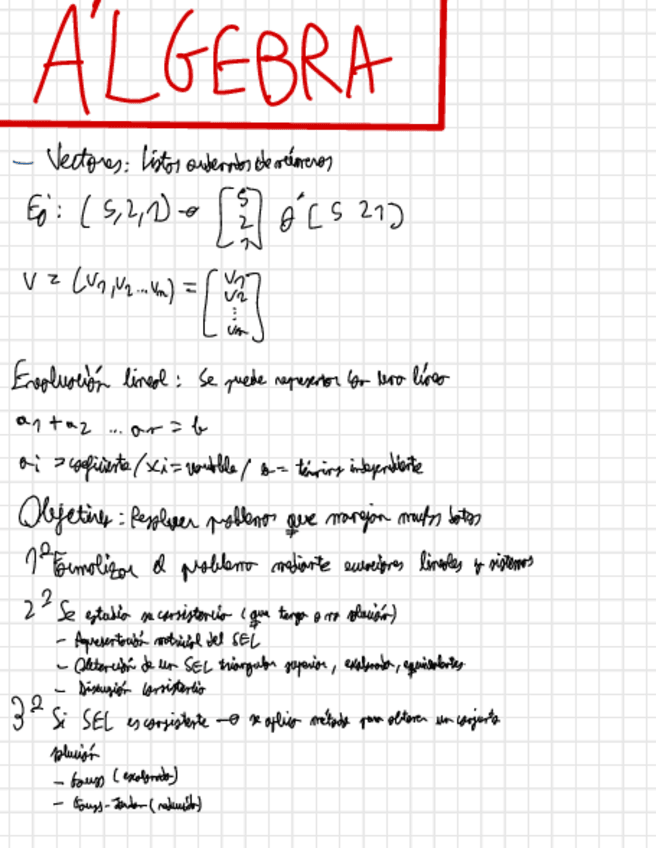 ÁLGEBRA
- Vectores: listas ordenadas de números
Ej: (5,2,1) → [5 2 1] ó [5 2 1]
v = (v1, v2 ... vn) = [v1 v2 ⋮ vn]
lineal: Se puede representar con una línea
a1 + a2 ... an = b
ai = coeficiente / xi = variable / b = término independiente
Objetivos: Resolver problemas que manejan muchos datos
1º Formalizar el problema mediante ecuaciones lineales y sistemas
2º Se estudia su consistencia (que tenga o no solución)
- Representación matricial del SEL
- Obtención de un SEL triangular superior, escalonado, equivalentes
- Discusión consistencia
3º Si SEL es consistente → se aplica método para obtener un conjunto
solución
- Gauss (escalonado)
- Gauss-Jordan (reducido)